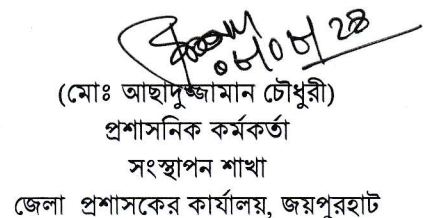 ০৮/০৮/২৪
(মোঃ আছাদুজ্জামান চৌধুরী)
প্রশাসনিক কর্মকর্তা
সংস্থাপন শাখা
জেলা প্রশাসকের কার্যালয়, জয়পুরহাট